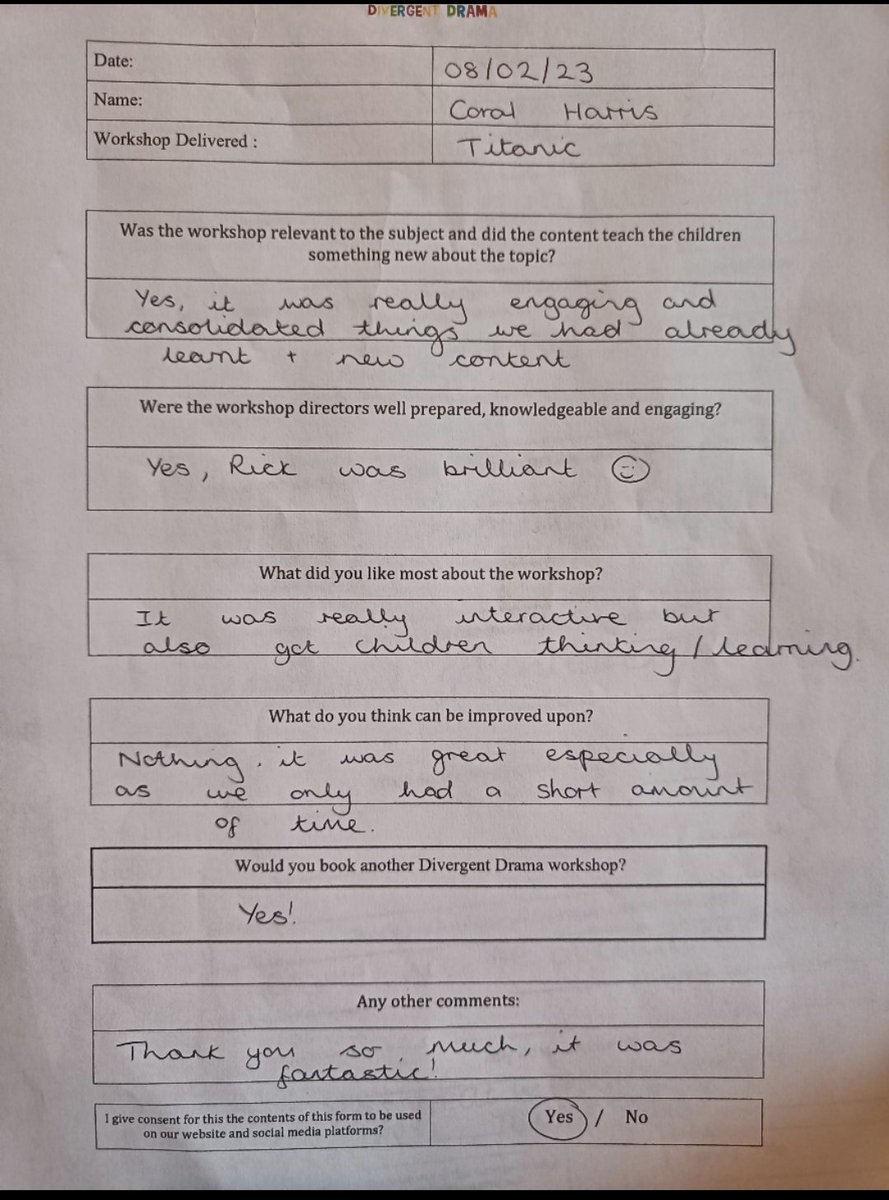 DIVERGENT DRAMA
Date: 08/02/23
Name: Coral Harris
Workshop Delivered : Titanic
Was the workshop relevant to the subject and did the content teach the children
something new about the topic?
Yes, it was really engaging and
consolidated things we had already
learnt + new content
Were the workshop directors well prepared, knowledgeable and engaging?
Yes, Rick was brilliant
What did you like most about the workshop?
It was really interactive but
also got children thinking / learning.
What do you think can be improved upon?
Nothing, it was great especially
as we only had a short amount
of time.
Would you book another Divergent Drama workshop?
Yes!
Any other comments:
Thank you so much, it was
fantastic!
I give consent for this the contents of this form to be used
on our website and social media platforms?
Yes / No